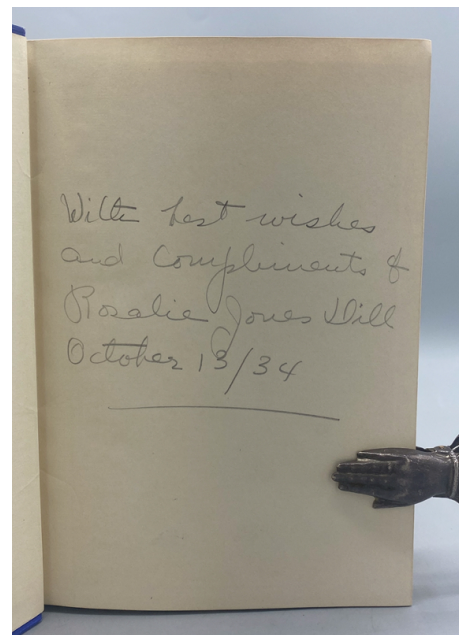 With best wishes
and Compliments of
Rosalie Jones Dill
October 13/34